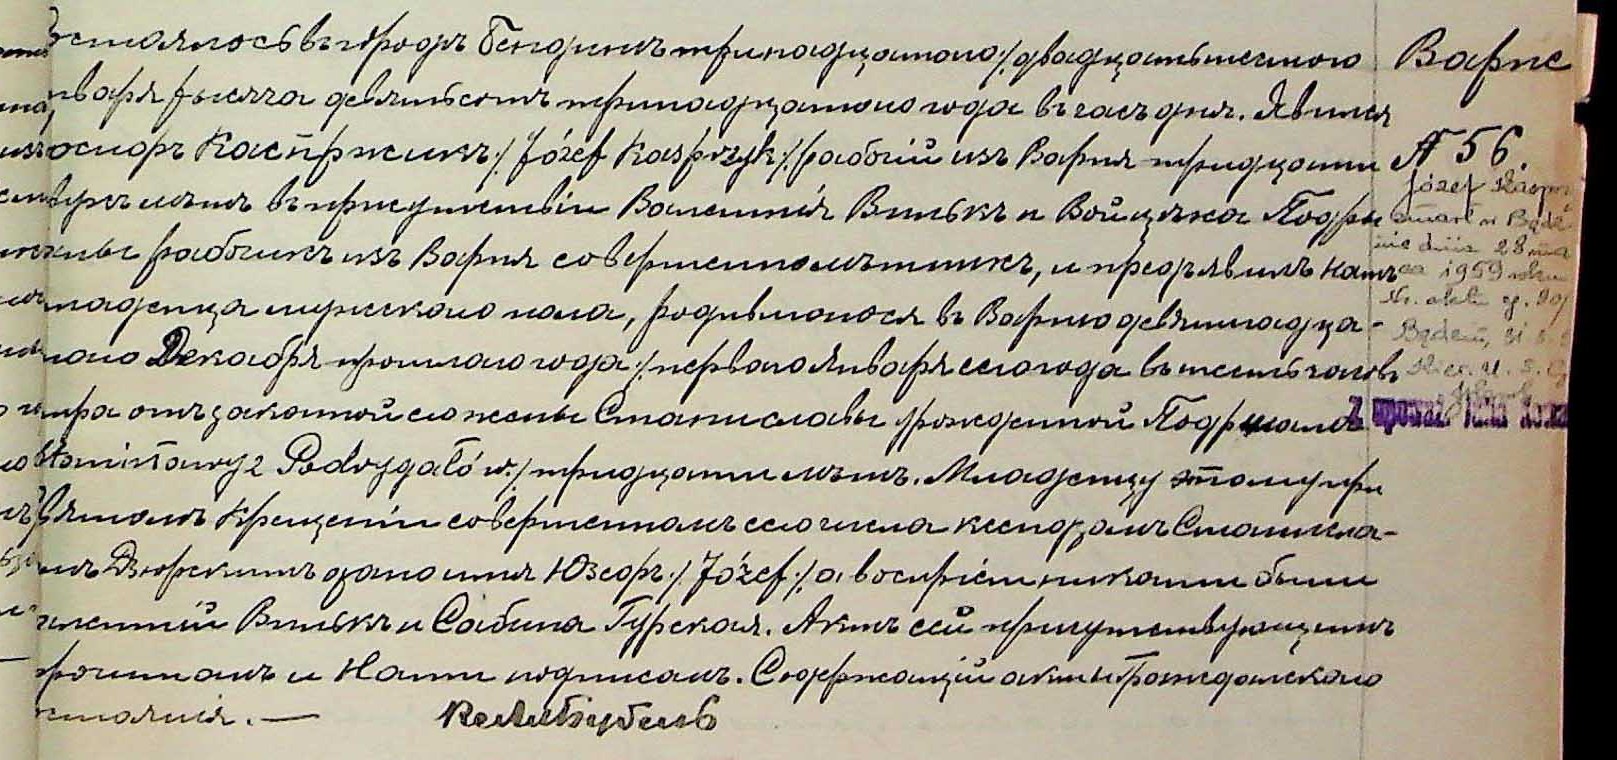 Состоялось въ городѣ Бендинѣ тринадцатаго /: двадцать шестого
Января тысяча девятьсотъ тринадцатаго года въ часъ дня. Явился
Іосифъ Каспржикъ /: Józef Kasprzyk :/ рабочій изъ Варпя тридцати
лѣтъ въ присутствіи Валентія Вилькъ и Войцѣха
рабочихъ изъ Варпя совершеннолѣтнихъ, и предъявилъ Намъ
младенца мужескаго пола, родившагося въ Варпю девятнадца-
таго Декабря прошлаго года /: перваго Января сего года въ шесть часовъ
утра отъ законной его жены Станиславы урожденной
Stanisławy z Podrygałów :/ тридцати лѣтъ. Младенцу этому при
Святомъ Крещеніи совершенномъ сего числа ксендзомъ Станисла-
вомъ дано имя Юзефъ /: Józef :/ а воспріемниками были
Валентій Вилькъ и Сабина Гурская. Актъ сей присутствующимъ
прочитанъ и Нами подписанъ. Содержащій акты Гражданскаго
состоянія. —
Варпе
№ 56.
Józef Kasprz
zmarł w Będzi
nie dnia 28 ma
ca 1959 roku
Nr. aktu
Będzin, 31